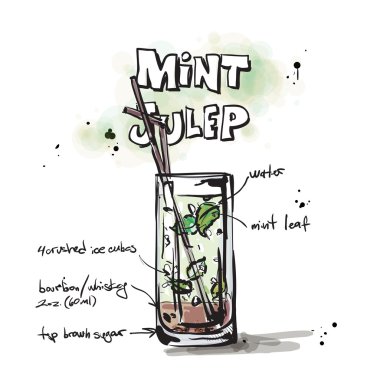 MiNT
JULEP
water
mint leaf
4 crushed ice cubes
bourbon/whiskey
2oz. (60ml)
tsp brown sugar